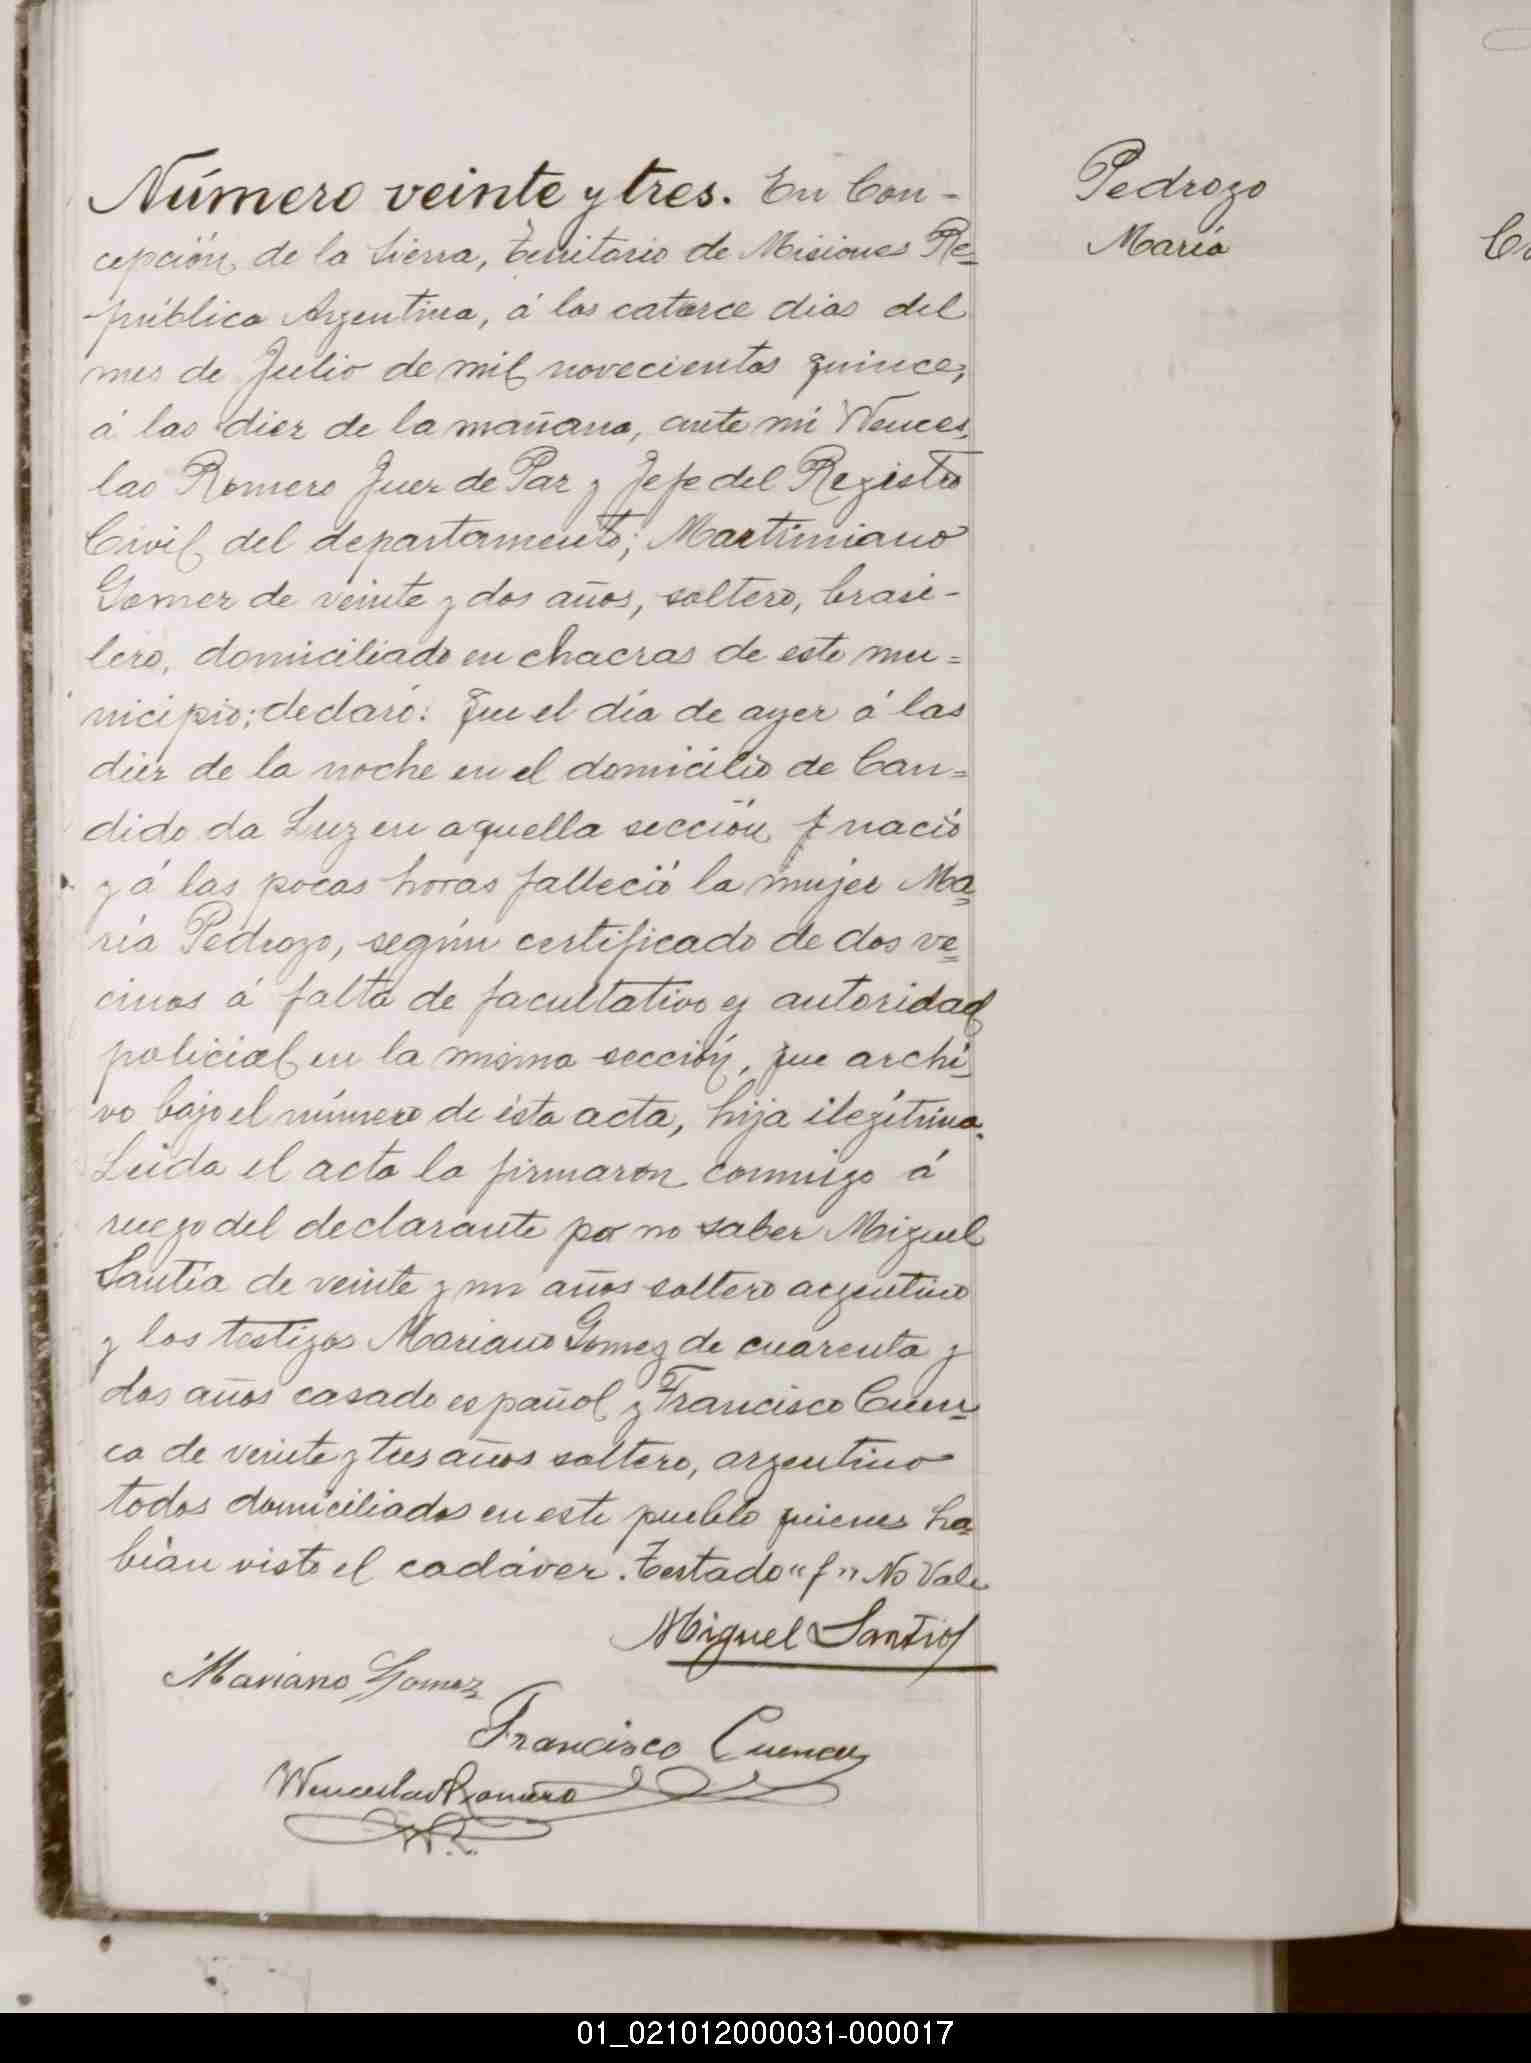 Número veinte y tres. En Con-
cepción de la Sierra, territorio de Misiones Re=
pública Argentina, á los catorce dias del
mes de Julio de mil novecientos quince,
á las diez de la mañana, ante mi Wences
lao Romero Juez de Paz y Jefe del Registro
Civil del departamento; Martimiano
Gomez de veinte y dos años, soltero, brasi-
lero, domiciliado en chacras de este mu=
nicipio; declaró: que el día de ayer á las
diez de la noche en el domicilio de Can=
dido da Luz en aquella sección f nació
y á las pocas horas falleció la mujer Ma=
ría Pedrozo, según certificado de dos ve=
cinos á falta de facultativo y autoridad
policial en la misma sección, que archi
vo bajo el número de ésta acta, hija ilegítima.
Leida el acta la firmaron conmigo á
ruego del declarante por no saber Miguel
Santía de veinte y un años soltero argentino
y los testigos Mariano Gomez de cuarenta y
dos años casado español y Francisco Cuen
ca de veinte y tres años soltero, argentino
todos domiciliados en este pueblo quienes ha
bían visto el cadáver. Testado "f" No Vale
Miguel Santía
Mariano Gomez
Francisco Cuenca
Wenceslao Romero
Pedrozo
María
01_021012000031-000017